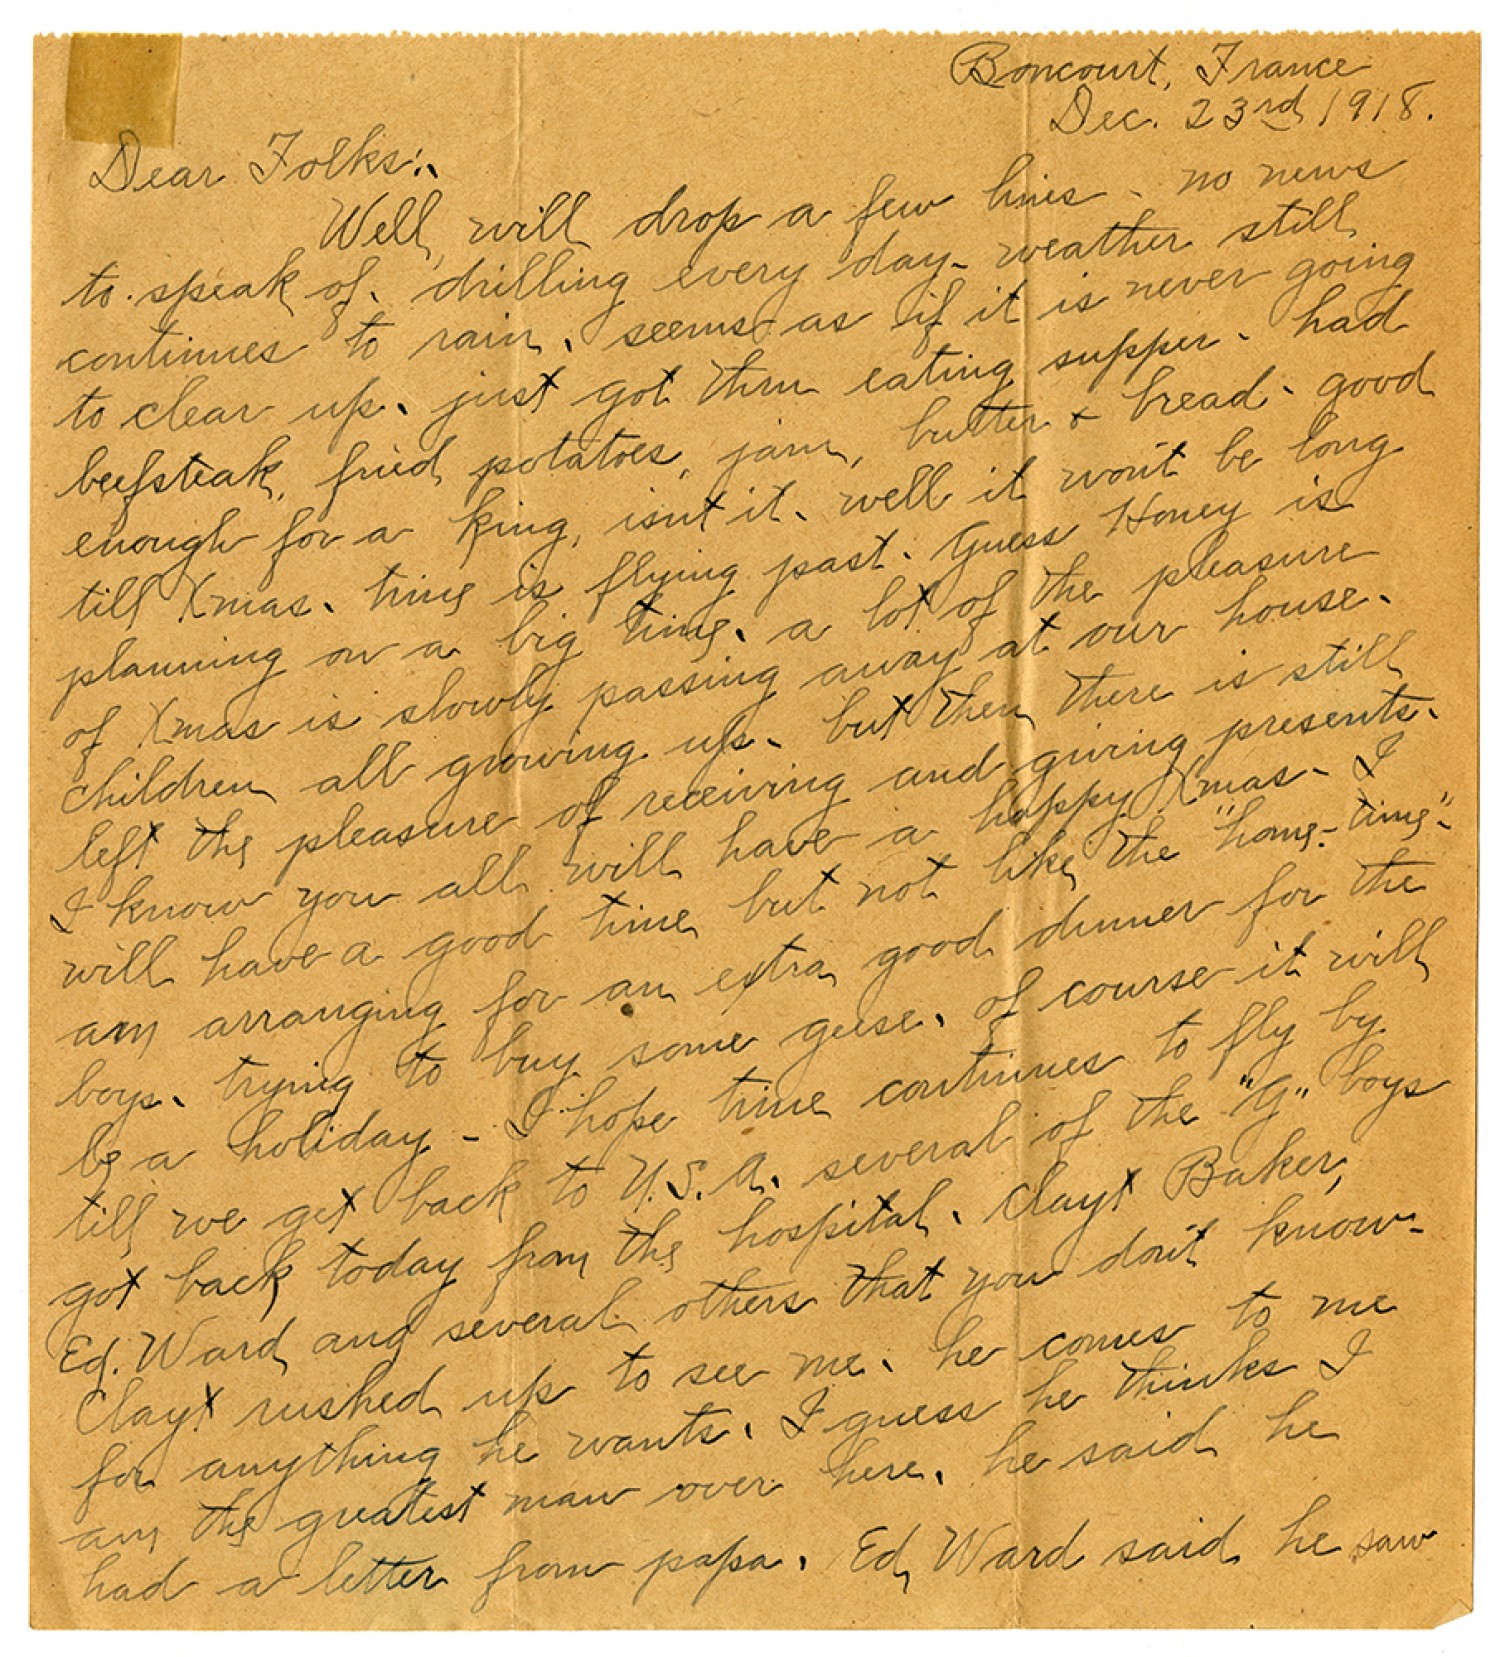 Boncourt, France
Dec. 23rd 1918.
Dear Folks:
Well, will drop a few lines - no news
to speak of. drilling every day - weather still
continues to rain. seems as if it is never going
to clear up. just got thru eating supper. had
beefsteak, fried potatoes, jam, butter & bread. good
enough for a king, isn't it. well it won't be long
till Xmas. time is flying past. Guess Honey is
planning on a big time. a lot of the pleasure
of Xmas is slowly passing away at our house.
children all growing up. but then there is still
left the pleasure of receiving and giving presents.
I know you all will have a happy Xmas. I
will have a good time but not like the "home-time".
am arranging for an extra good dinner for the
boys. trying to buy some geese. of course it will
be a holiday - I hope time continues to fly by
till we get back to U.S.A. several of the "G" boys
got back today from the hospital. Clayt Baker,
Ed. Ward and several others that you don't know.
Clayt rushed up to see me. he comes to me
for anything he wants. I guess he thinks I
am the greatest man over here. he said he
had a letter from papa. Ed Ward said he saw